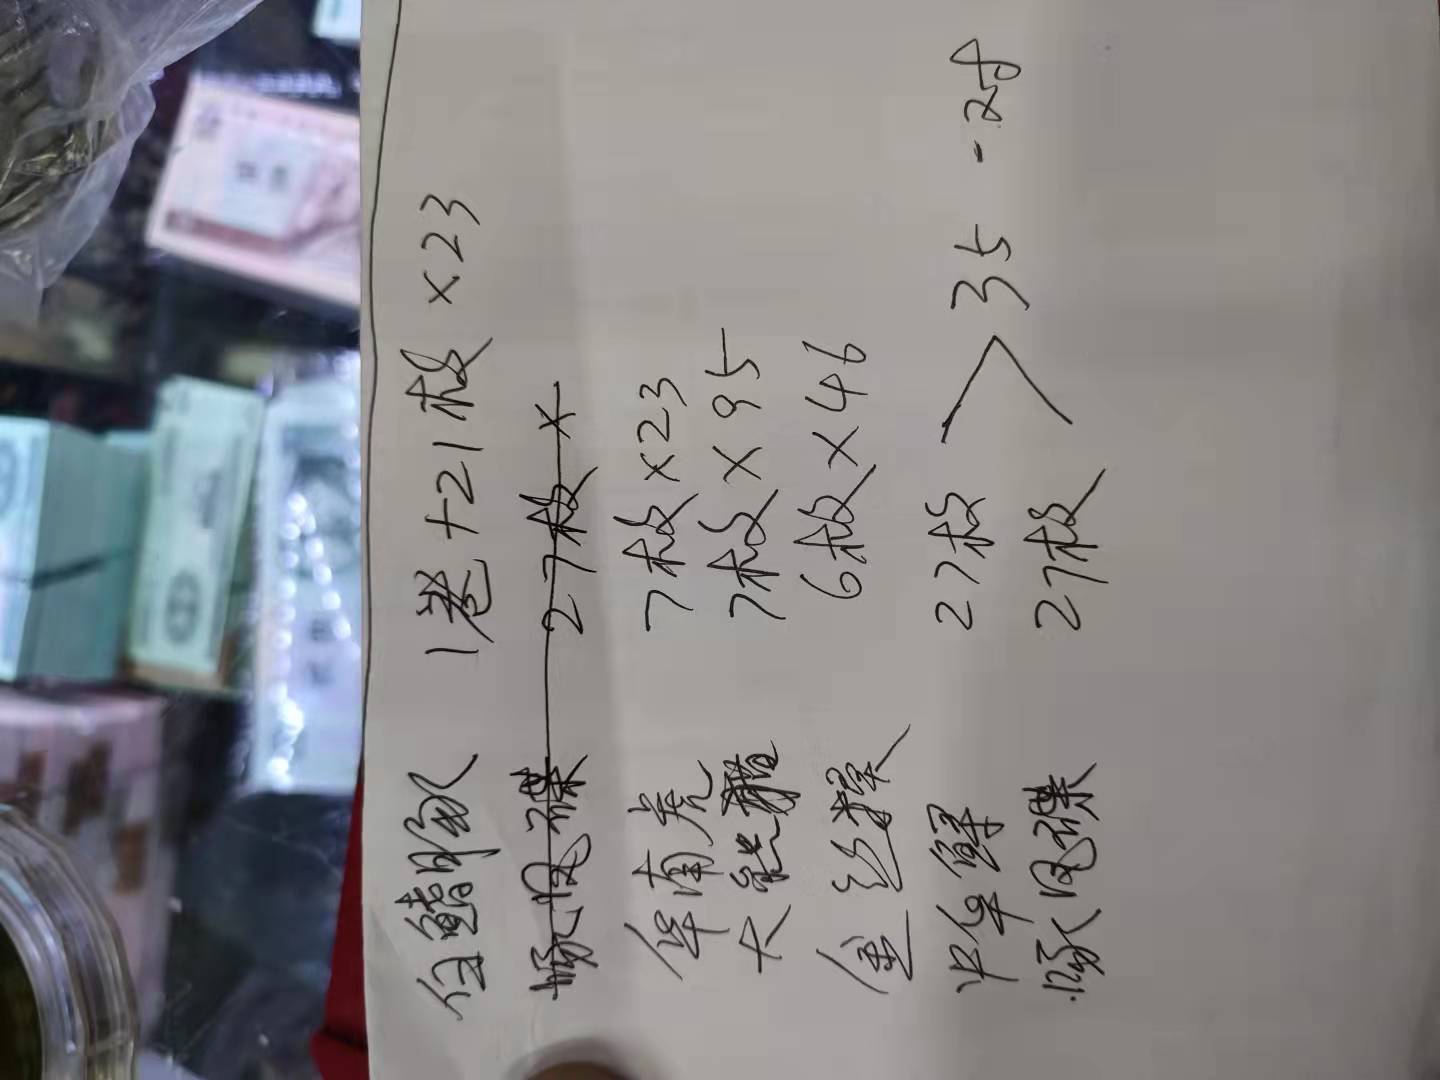 白鳍豚 1卷+21枚 ×23
喙凤蝶 27枚 ×
华南虎 7枚 ×23
大熊猫 7枚 × 95
金丝猴 6枚 × 46
中华鲟 27枚
喙凤蝶 27枚
> 35 - 28